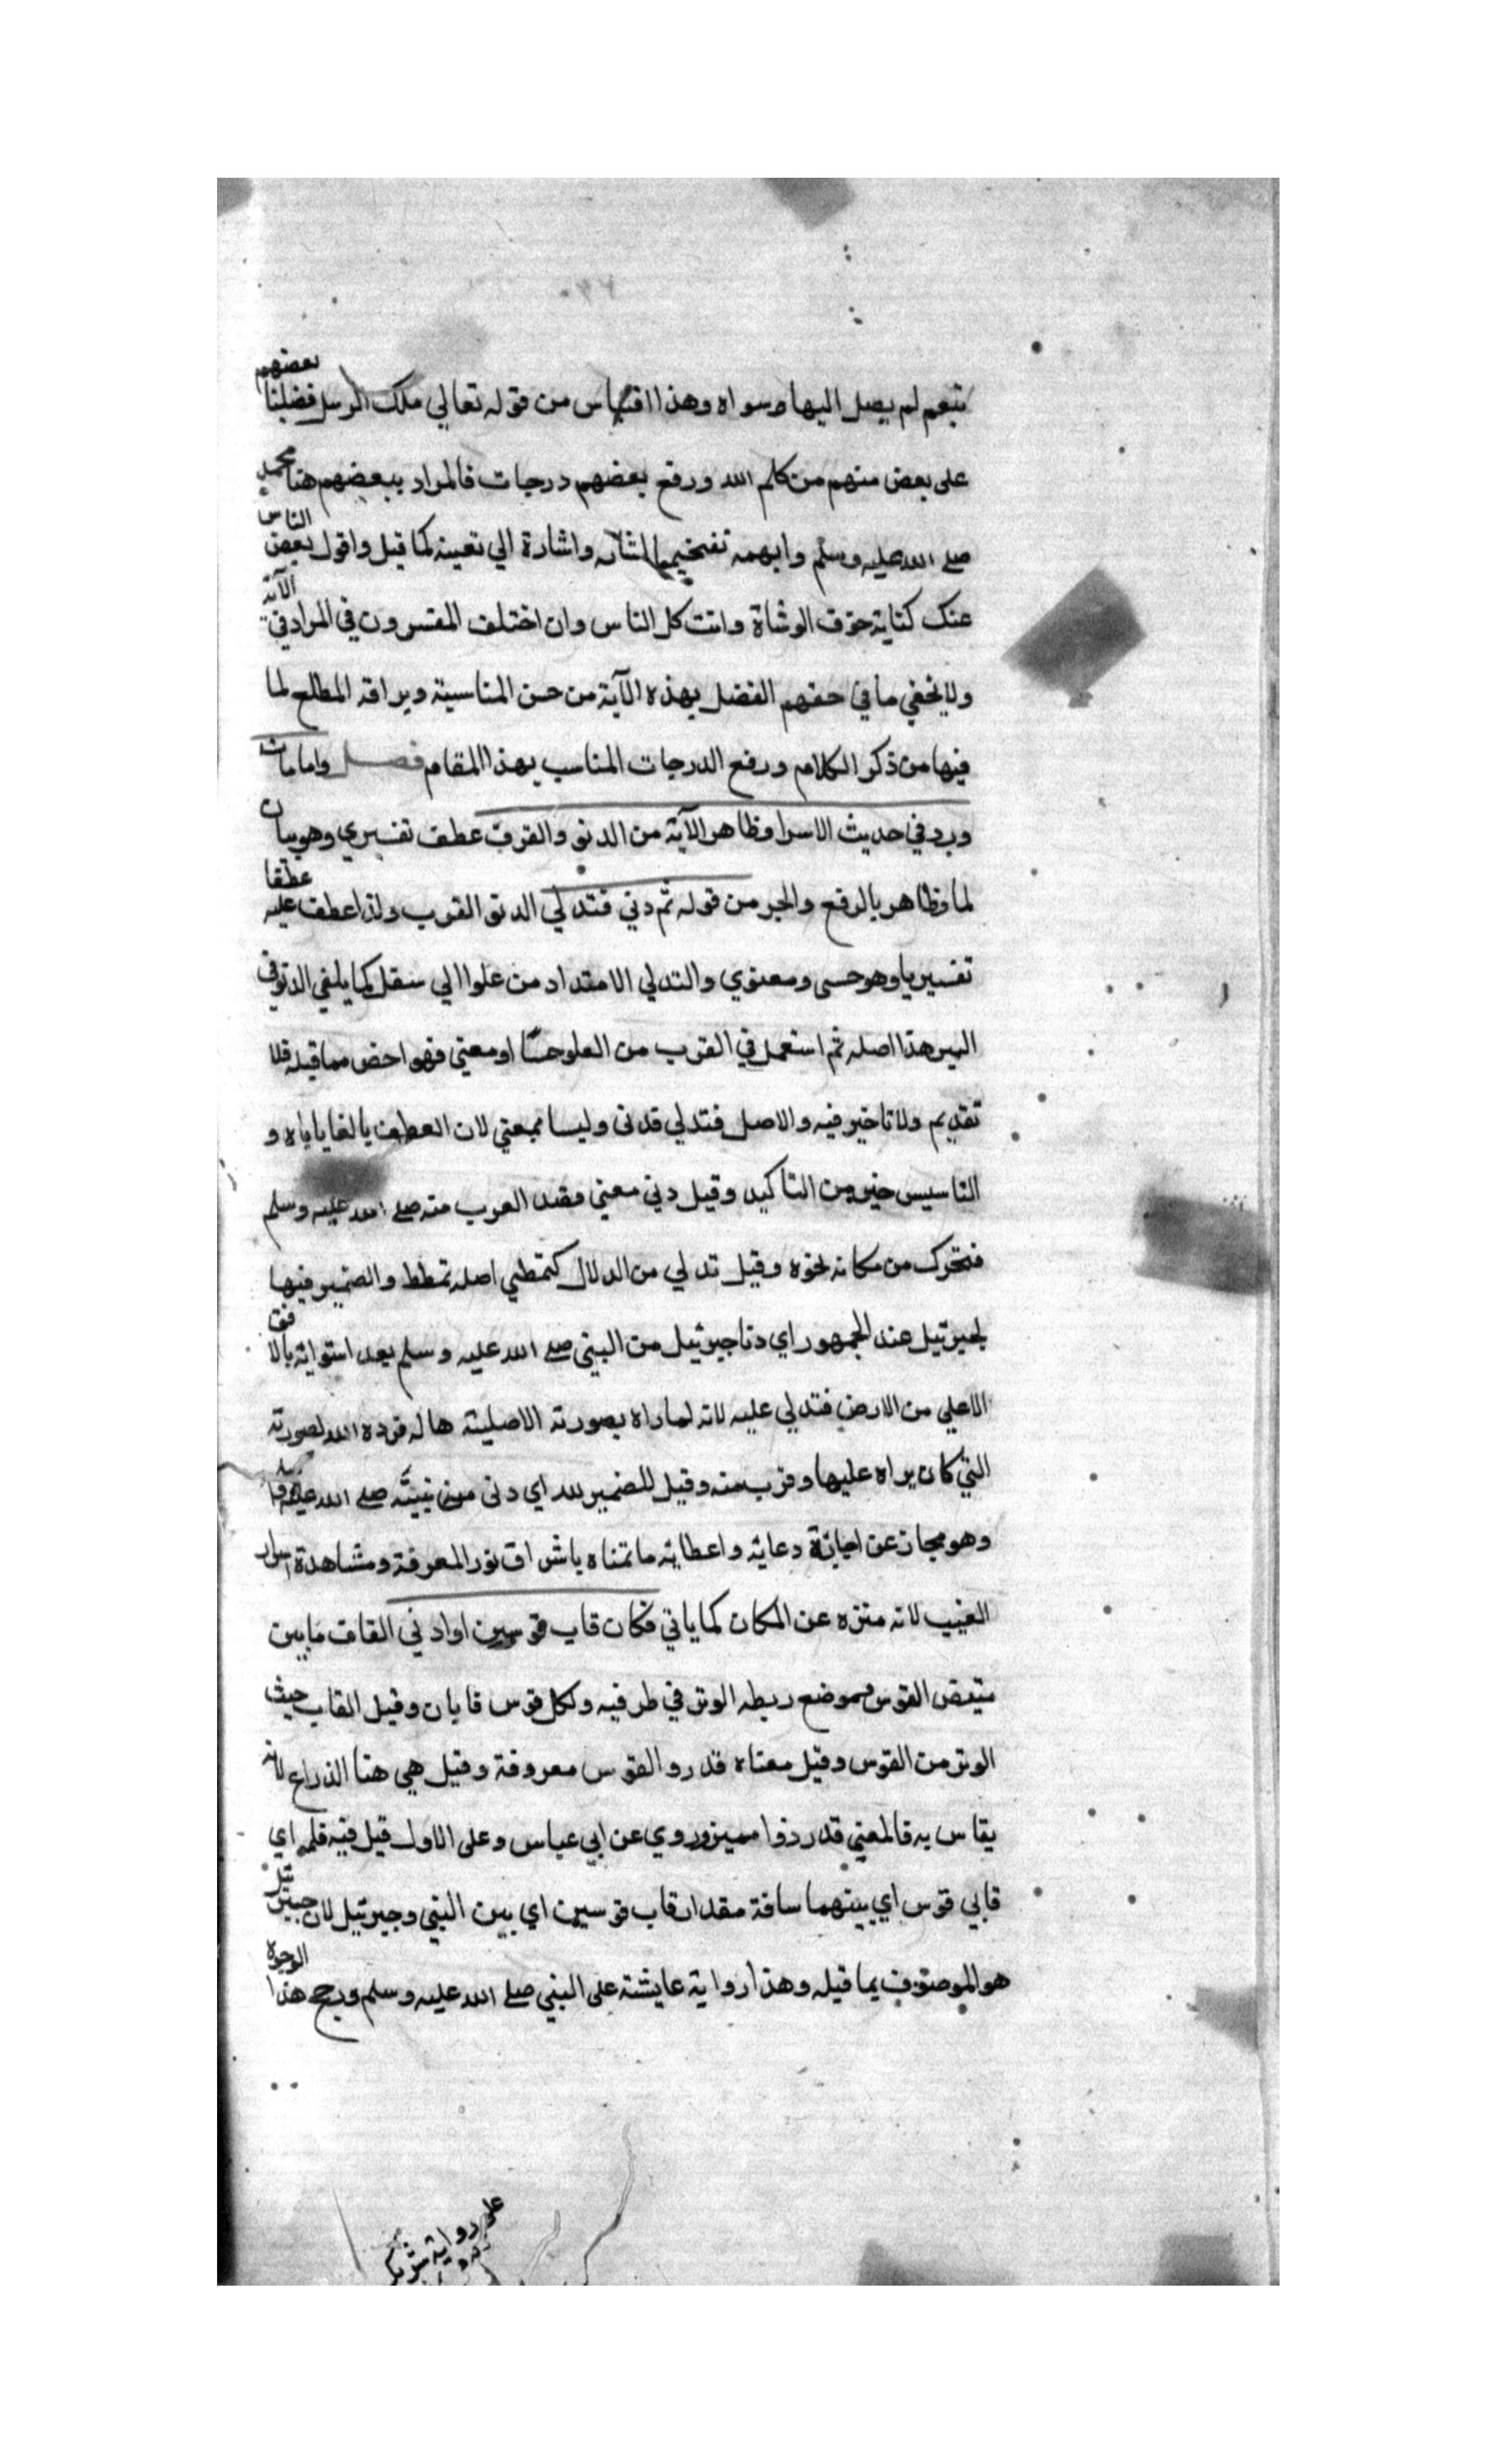 بتعم لم يصل اليها وسواه وهذا اقتباس من قوله تعالي ملك الرسل فضلنا بعضهم
على بعض منهم من كلم الله ورفع بعضهم درجات فالمراد ببعضهم هنا محمد
صلے الله عليه وسلم وابهمه تفخيما لشانه واشارة الي تعينه كما قيل واقول بعض الناس
عنك كناية خوف الوشاة وانت كل الناس وان اختلف المفسرون في المراد في الآية
ولا يخفي ما في ختهم الفصل بهذه الآية من حسن المناسبة وبراقة المطلع لما
فيها من ذكر الكلام ورفع الدرجات المناسب بهذا المقام فصل واما ما
ورد في حديث الاسرا وظاهر الآية من الدنو والقرب عطف تفسيري وهو بيان
لما وظاهر بالرفع والجر من قوله ثم دني فتدلي الدنو القرب ولذا عطف عليه عطفا
تفسيريا وهو حسي ومعنوي والتدلي الامتداد من علو الي سفل كما يلقي الدلو في
البير هذا اصله ثم استعمل في القرب من العلو حسّا او معني فهو اخص مما قبله فلا
تقديم ولا تاخير فيه والاصل فتدلي فدنى وليسا بمعني لان العطف بالفا ياباه و
التاسيس خير من التاكيد وقيل دني معني قصد القرب منه صلے الله عليه وسلم
فتحرك من مكانه نحوه وقيل تدلي من الدلال كتمطي اصله تمطط والضمير فيها
لجبرئيل عند الجمهور اي دنا جبرئيل من النبي صلے الله عليه وسلم بعد استوائه بالافق
الاعلي من الارض فتدلي عليه لانه لما راه بصورته الاصلية هاله فرده الله لصورته
التي كان يراه عليها وقرب منه وقيل للضمير لله اي دنى من نبيّه صلے الله عليه
وهو مجاز عن اجابة دعائه واعطائه ما تمناه باشراق نور المعرفة ومشاهدة اسرار
الغيب لانه منزه عن المكان كما ياتي فكان قاب قوسين او ادني القاف ما بين
مقبض القوس وموضع ربطه الوتر في طرفيه ولكل قوس قابان وقيل القاب حيث
الوتر من القوس وقيل معناه قدر والقوس معروفة وقيل هي هنا الذراع لانه
يقاس به فالمعني قدر ذراعين وروي عن ابي عباس وعلى الاول قيل فيه قلب اي
قابي قوس اي بينهما سافة مقدار قاب قوسين اي بين النبي وجبرئيل لان جبرئيل
هو الموصوف بما قبله وهذا رواية عايشة على النبي صلے الله عليه وسلم ورجح هذا الوجوه
على رواية شريك